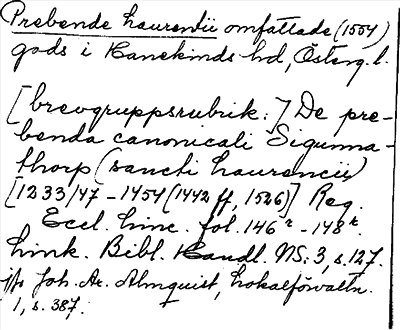 Prebende Laurentii omfattade (1554)
gods i Hanekinds hd, Österg. l.
[brevgruppsrubrik:] De pre-
benda canonicali Sigunna-
thorp (sancti Laurencii)
[1233/47 - 1454 (1442 ff, 1526)] Reg.
Eccl. Linc. fol. 146 r - 148 r.
Link. Bibl. Handl. NS: 3, s. 127.
jfr Joh. Ax. Almquist, Lokalförvaltn.
1, s. 387.